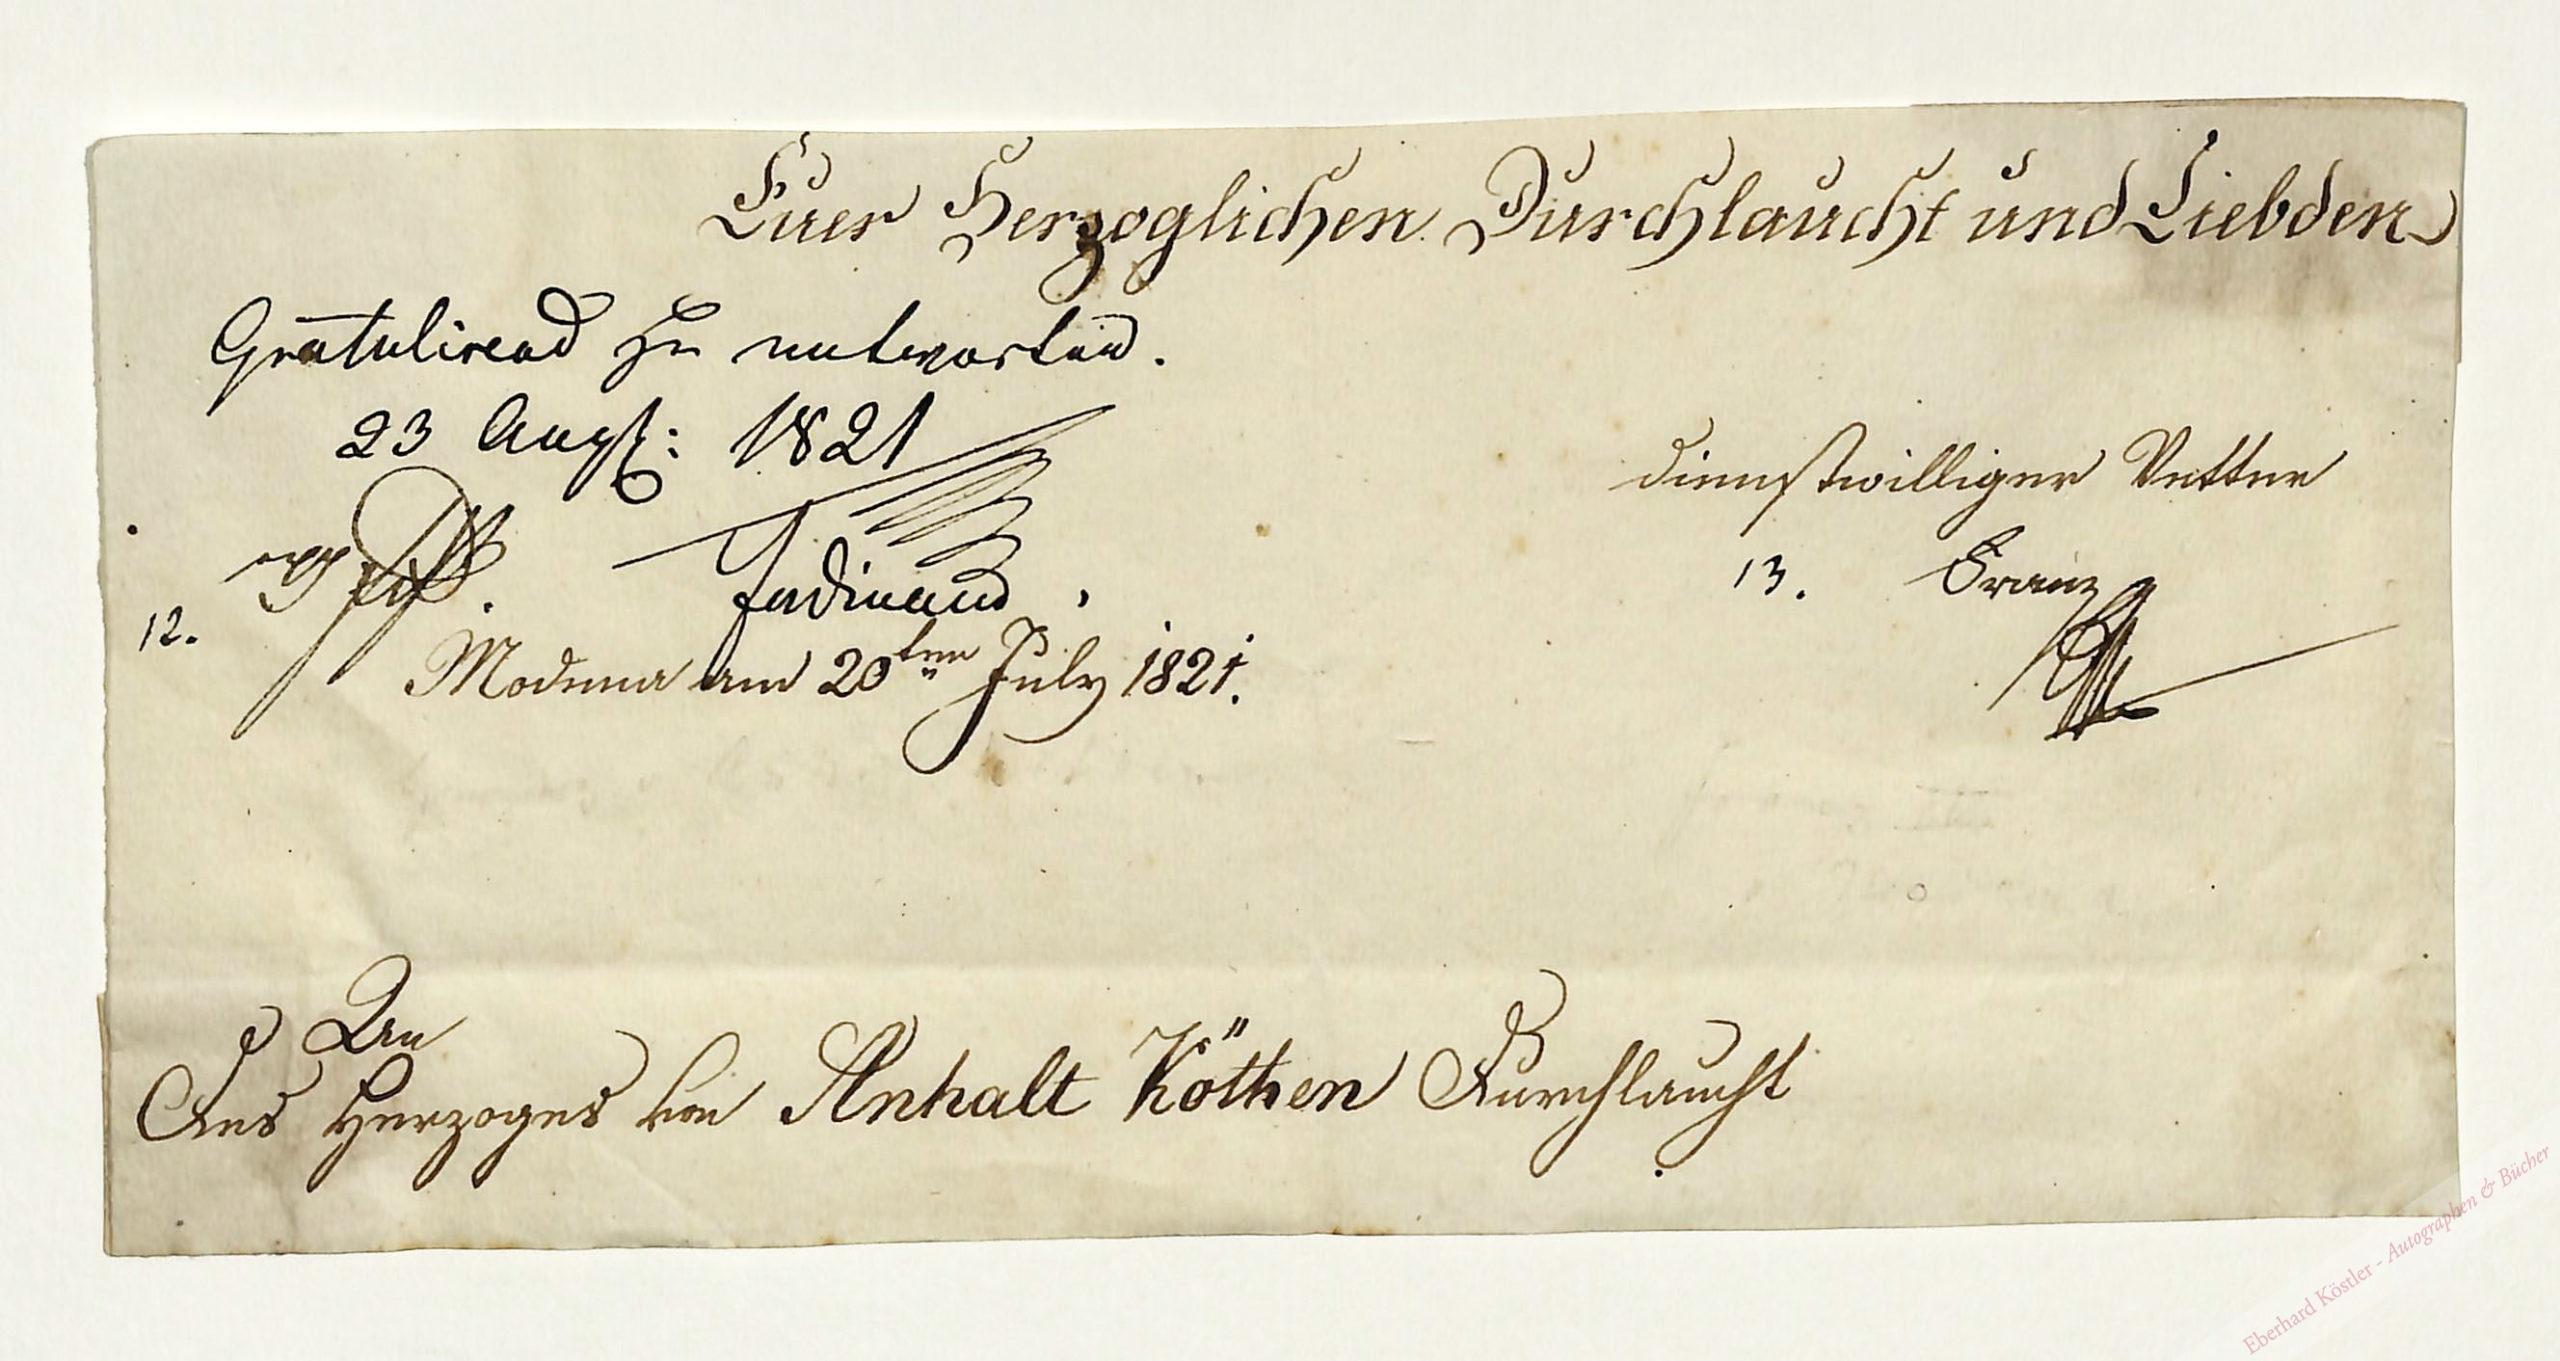 Euer Herzoglichen Durchlaucht und Liebden
Gratulirend zu antworten.
23 Augst: 1821
dienstwilliger Vetter
Ferdinand
13. Franz
12.
Modena am 20ten July 1821.
An
Des Herzoges von Anhalt Köthen Durchlaucht
Eberhard Köstler - Autographen & Bücher